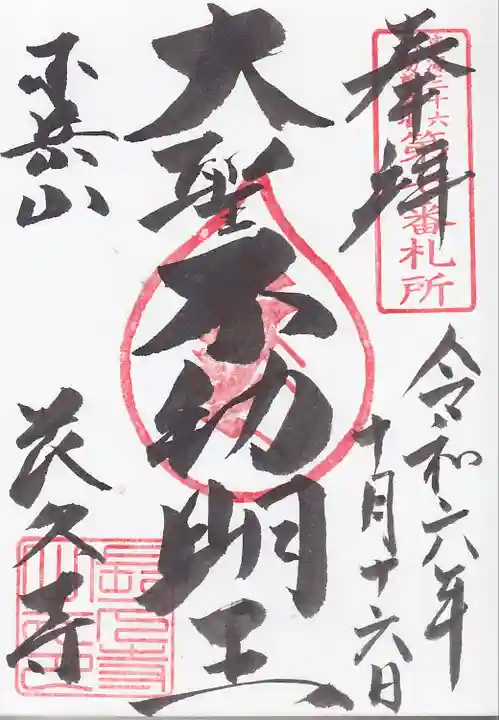 奉拝
番札所
令和六年
十月十六日
大聖不動明王
長久寺